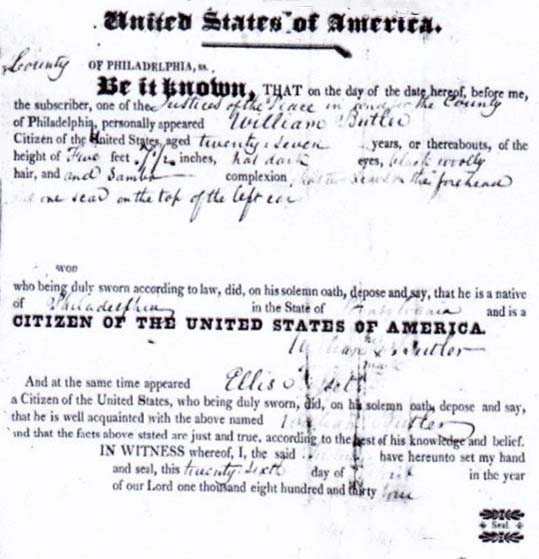 United States of America.
County OF PHILADELPHIA, ss.
Be it known, THAT on the day of the date hereof, before me,
the subscriber, one of the Justices of the Peace in and for the County
of Philadelphia, personally appeared William Butler
Citizen of the United States, aged twenty seven years, or thereabouts, of the
height of Five feet inches, has dark eyes, black woolly
hair, and and Sambo complexion has two scars on the forehead
and one scar on the top of the left ear
won
who being duly sworn according to law, did, on his solemn oath, depose and say, that he is a native
of Philadelphia in the State of Pensylvania and is a
CITIZEN OF THE UNITED STATES OF AMERICA.
his
William Butler
mark
And at the same time appeared Ellis
a Citizen of the United States, who being duly sworn, did, on his solemn oath, depose and say,
that he is well acquainted with the above named William Butler
and that the facts above stated are just and true, according to the best of his knowledge and belief.
IN WITNESS whereof, I, the said have hereunto set my hand
and seal, this twenty sixth day of in the year
of our Lord one thousand eight hundred and thirty
Seal.